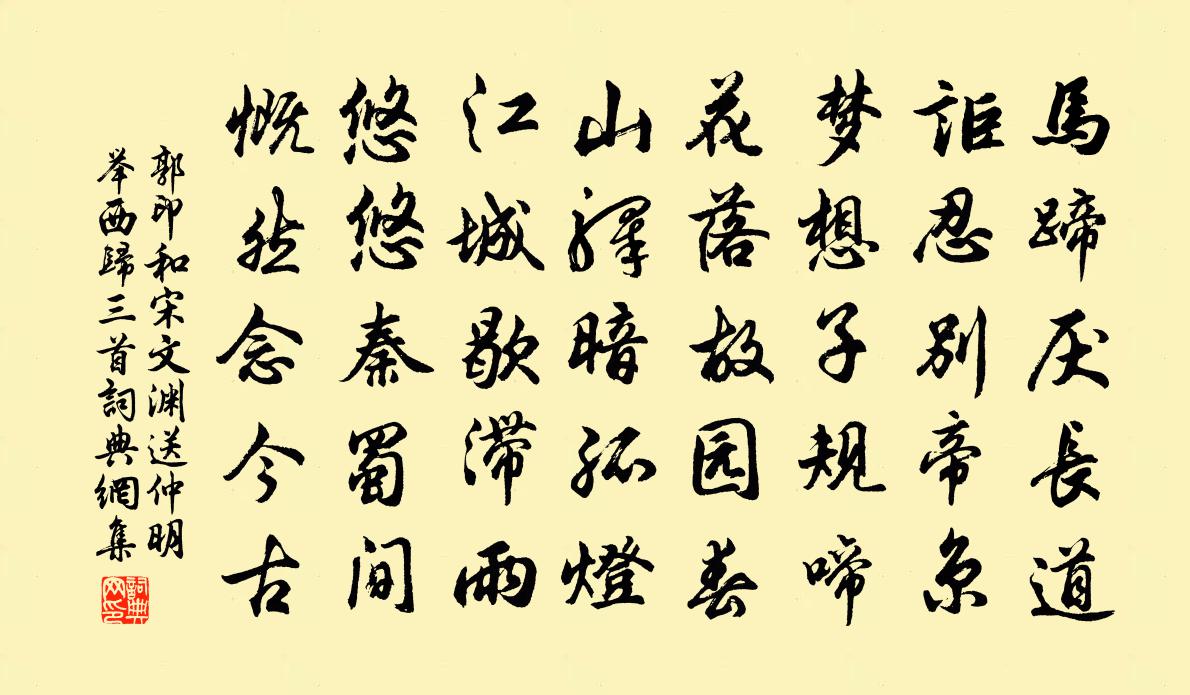 馬蹄厌長道
詎忍别帝京
梦想子規啼
花落故园春
山驛暗孤燈
江城歇滞雨
悠悠秦蜀间
慨然念今古
郭印和宋文渊送仲明
举西歸三首詞典網集
詞典网印